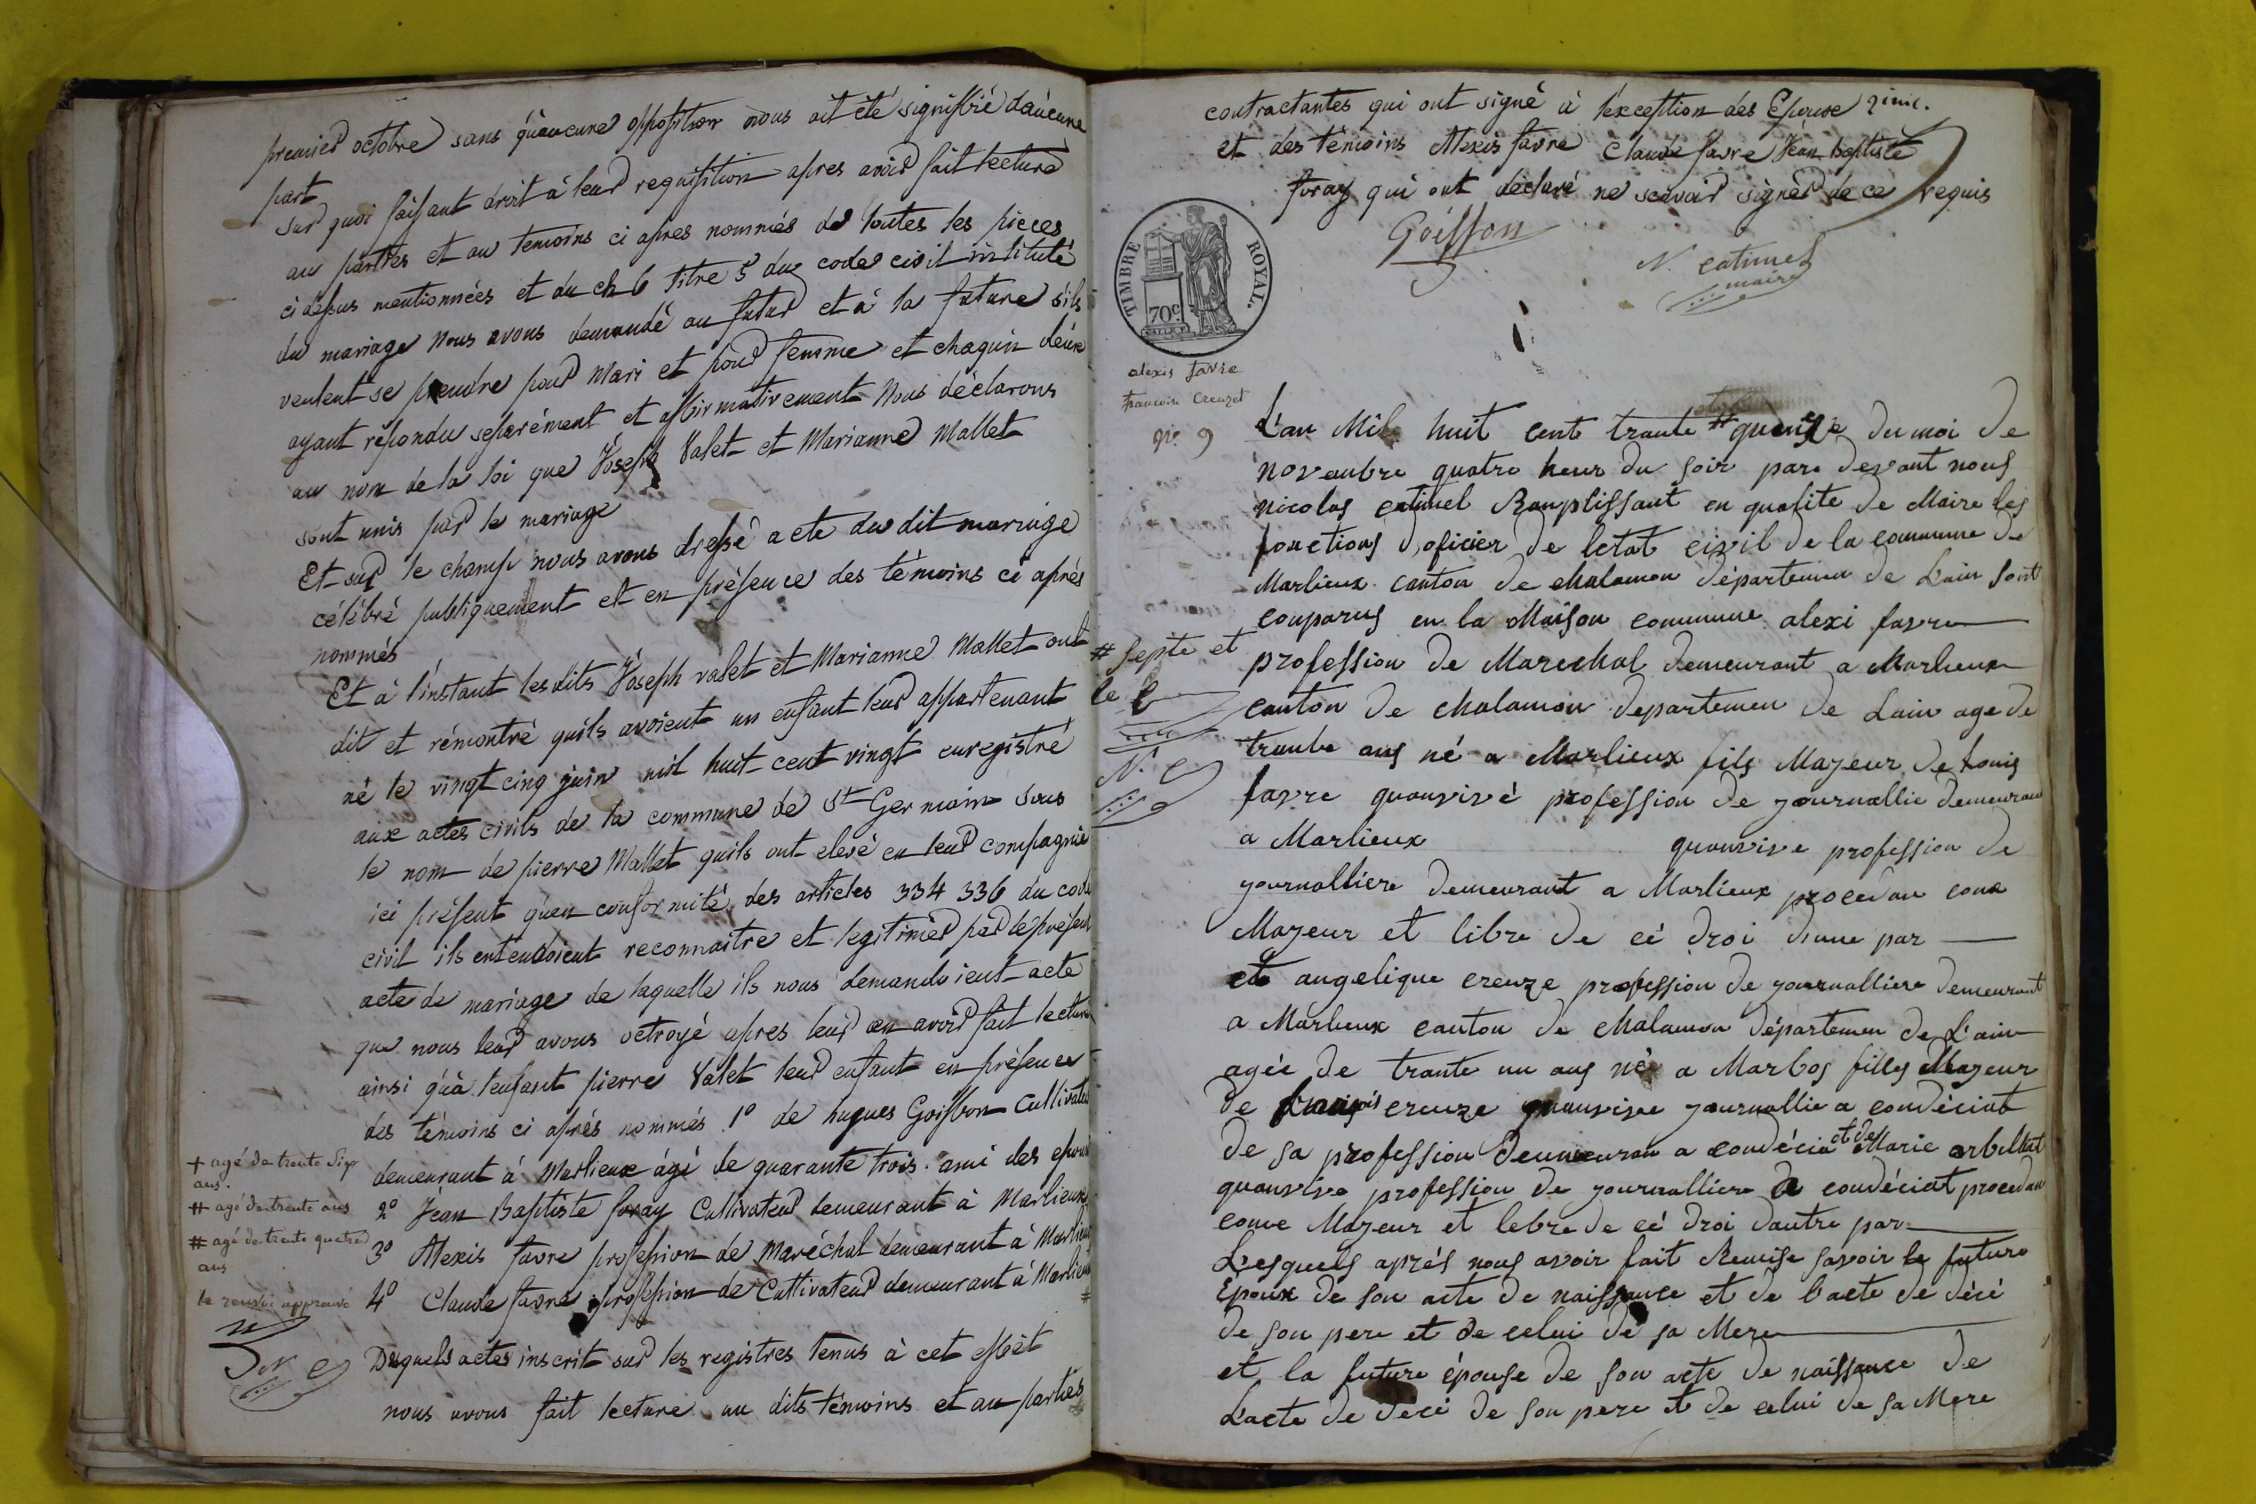 premier octobre sans qu'aucune opposition nous ait été signiffié d'aucune
part
sur quoi faisant droit à leur requisition apres avoir fait lecture
au parties et au temoins ci apres nommés de toutes les pieces
ci dessus mentionnées et du ch 6 titre 5 du code civil intitulé
du mariage nous avons demandé au futur et à la future s'ils
veulent se prendre pour mari et pour femme et chaqun d'eux
ayant répondu séparément et affirmativement nous déclarons
au nom de la loi que Joseph Valet et Marianne Mallet
sont unis par le mariage
Et sur le champ nous avons dressé acte du dit mariage
célébré publiquement et en présence des témoins ci aprés
nommés
Et à l'instant les dits Joseph valet et Marianne Mallet ont
dit et rémontré quils avoient un enfant leur appartenant
né le vingt cinq juin mil huit cent vingt enregistré
aux actes civils de la commune de St Germain sous
le nom de pierre Mallet quils ont elevé en leur compagnie
ici présent qu'en conformité des articles 334 336 du code
civil ils entendoient reconnaitre et legitimer par le présent
acte de mariage de laquelle ils nous demandoient acte
que nous leur avons octroyé apres leur en avoir fait lecture
ainsi qu'à l'enfant pierre Valet leur enfant en présence
des témoins ci aprés nommés 1° de hugues Goiffon Cultivateur
demeurant à Marlieux âgé de quarante trois. ami des epoux
2° Jean Baptiste foray Cultivateur demeurant à Marlieux
3° Alexis favre profession de maréchal demeurant à Marlieux
4° Claude favre profession de Cultivateur demeurant à Marlieux #
Desquels actes inscrit sur les registres tenus à cet effet
nous avons fait lecture au dits témoins et au parties
+ agé de trente six
ans.
# agé de trente ans
# agé de trente quatre
ans
le renvoi approuvé
N. C
contractantes qui ont signé à l'exception des Epouse
et des témoins Alexis favre Claude favre Jean baptiste
foray qui ont déclaré ne scavoir signér de ce requis
Goiffon
N. catimel
maire
TIMBRE ROYAL.
70c.
alexis favre
creuzet
n° 9
L'an Mil huit cent trante # quinze du moi de
novenbre quatre heur du soir par devant nous
nicolas catimel Ramplissant en qualite de Maire les
fonctions d'oficier de letat civil de la commune de
Marlieux canton de chalamon départemen de Lain sont
conparus en la Maison commune alexi favre
profession de Marechal demeurant a Marlieux
canton de chalamon departemen de Lain age de
trante ans né a Marlieux fils Majeur de Louis
favre quanvivé profession de journallié demeuran
a Marlieux quanvive profession de
journalliere demeurant a Marlieux procedan come
Majeur et libre de cé droi dune par
et angelique creuze profession de journalliere demeurant
a Marlieux canton de chalamon départemen de L'ain
agée de trante un ans né a Marbos filles Majeur
de creuze quanvivee journallié a condéciat
de sa profession demeuran a condécia et de Marie arbillat
quanvive profession de journalliere a condéciat procedan
come Majeur et lebre de cé droi dautre par
Lesquels aprés nous avoir fait Remise savoir le future
Epoux de son acte de naissance et de l'acte de décé
de son pere et de celui de sa Mere
et la future épouse de son acte de naissance de
Lacte de decé de son pere et de celui de sa Mere
# septe et
le
N. C